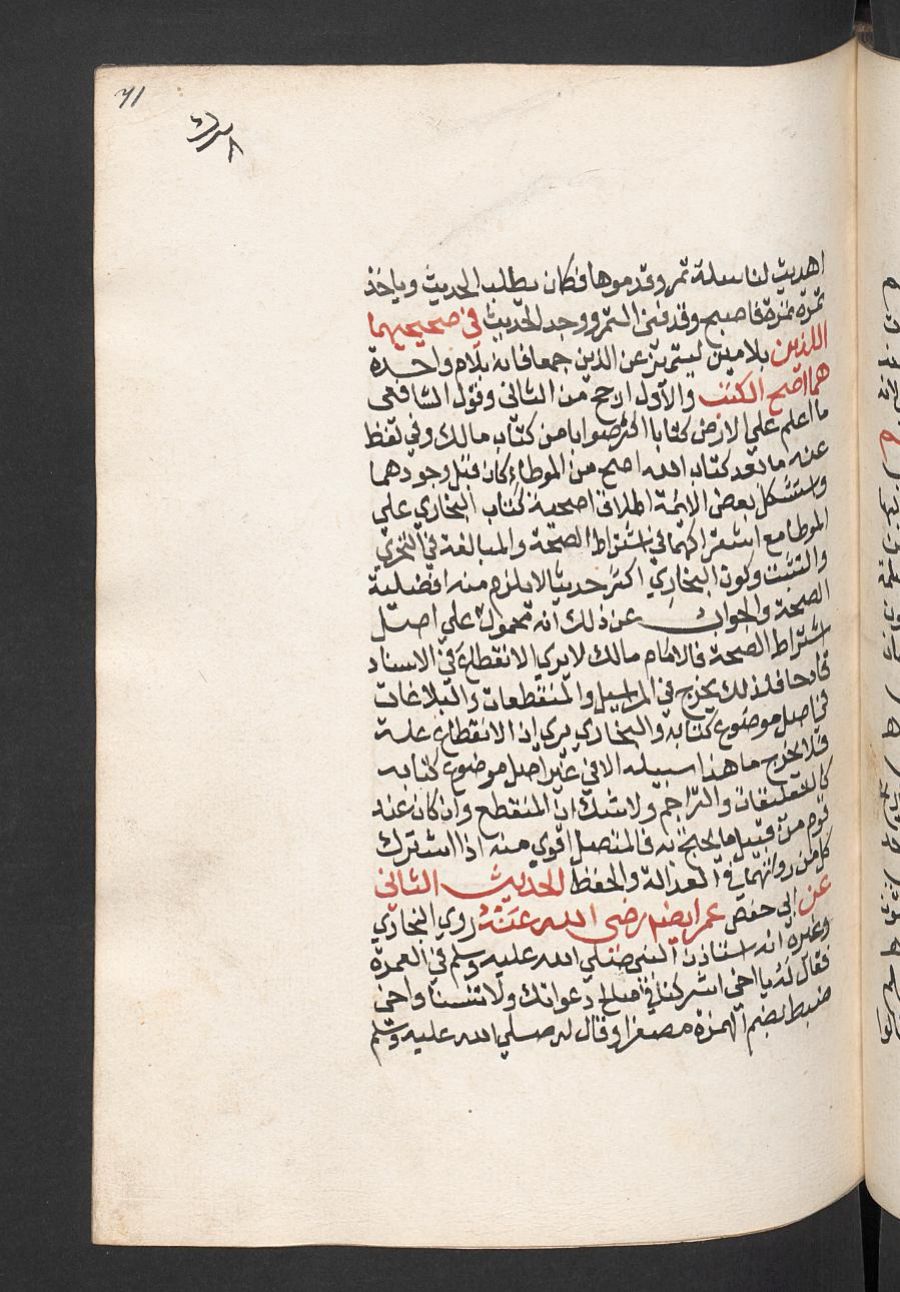 71
اهديت لنا سلة تمر وقدموها فكان يطلب الحديث وياخذ
تمرة تمرة فاصبح وقد فنى التمر ووجد الحديث في صحيحيهما
اللذين بلامين ليتميز عن الذين جمعا فانه بلام واحدة
هما اصح الكتب والاول ارجح من الثاني وقول الشافعي
ما اعلم على الارض كتابا اكثر صوابا من كتاب مالك وفي لفظ
عنه ما بعد كتاب الله اصح من الموطا كان قبل وجودهما
واستشكل بعض الائمة اطلاق اصحية كتاب البخاري علي
الموطا مع اشتراكهما في اشتراط الصحة والمبالغة في التحري
والتثبت وكون البخاري اكثر حديثا لا يلزم منه افضلية
الصحة والجواب عن ذلك انه محمول علي اصل
اشتراط الصحة فالامام مالك لا يري الانقطاع في الاسناد
قادحا فلذلك يخرج في المراسيل والمنقطعات والبلاغات
في اصل موضوع كتابه والبخاري يري ان الانقطاع علة
فلا يخرج ما هذا سبيله الا في غير اصل موضوع كتابه
كالتعليقات والتراجم ولا شك ان المنقطع وان كان عند
قوم من قبيل ما يحتج به فالمتصل اقوي منه اذا اشترك
كل من رواتهما في العدالة والحفظ الحديث الثاني
عن ابي حفص عمر ايضا رضى الله عنه روي البخاري
وغيره انه استاذن النبي صلي الله عليه وسلم في العمرة
فقال له يا اخي اشركنا في صالح دعواتك ولا تنسنا واخي
ضبط بضم الهمزة مصغرا وقال له صلي الله عليه وسلم